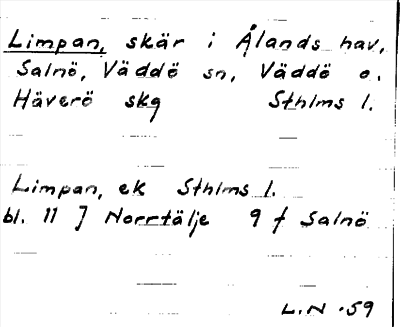 Limpan, skär i Ålands hav,
Salnö, Väddö sn, Väddö o.
Häverö skg Sthlms l.
Limpan, ek Sthlms l.
bl. 11 J Norrtälje 9 f Salnö
L.N .59